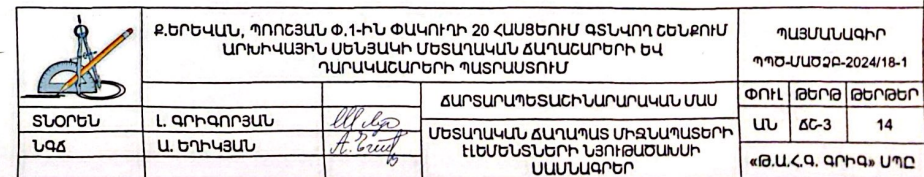 Ք.ԵՐԵՎԱՆ, ՊՌՈՇՅԱՆ Փ.1-ԻՆ ՓԱԿՈՒՂԻ 20 ՀԱՍՑԵՈՒՄ ԳՏՆՎՈՂ ՇԵՆՔՈՒՄ
ԱՐԽԻՎԱՅԻՆ ՍԵՆՅԱԿԻ ՄԵՏԱՂԱԿԱՆ ՃԱՂԱՇԱՐԵՐԻ ԵՎ
ԴԱՐԱԿԱՇԱՐԵՐԻ ՊԱՏՐԱՍՏՈՒՄ
ՊԱՅՄԱՆԱԳԻՐ
ՊՊԾ-ՄԱԾՁԲ-2024/18-1
ՃԱՐՏԱՐԱՊԵՏԱՇԻՆԱՐԱՐԱԿԱՆ ՄԱՍ
ՓՈՒԼ ԹԵՐԹ ԹԵՐԹԵՐ
ՏՆՕՐԵՆ Լ. ԳՐԻԳՈՐՅԱՆ
ՄԵՏԱՂԱԿԱՆ ՃԱՂԱՊԱՏ ՄԻՋՆԱՊԱՏԵՐԻ
ԷԼԵՄԵՆՏՆԵՐԻ ՆՅՈՒԹԱԾԱԽՍԻ
ՄԱՍՆԱԳՐԵՐ
ԱՆ ՃՇ-3 14
ՆԳՃ Ա. ԵՂԻԿՅԱՆ
«Թ.Ա.Հ.Գ. ԳՐԻԳ» ՍՊԸ